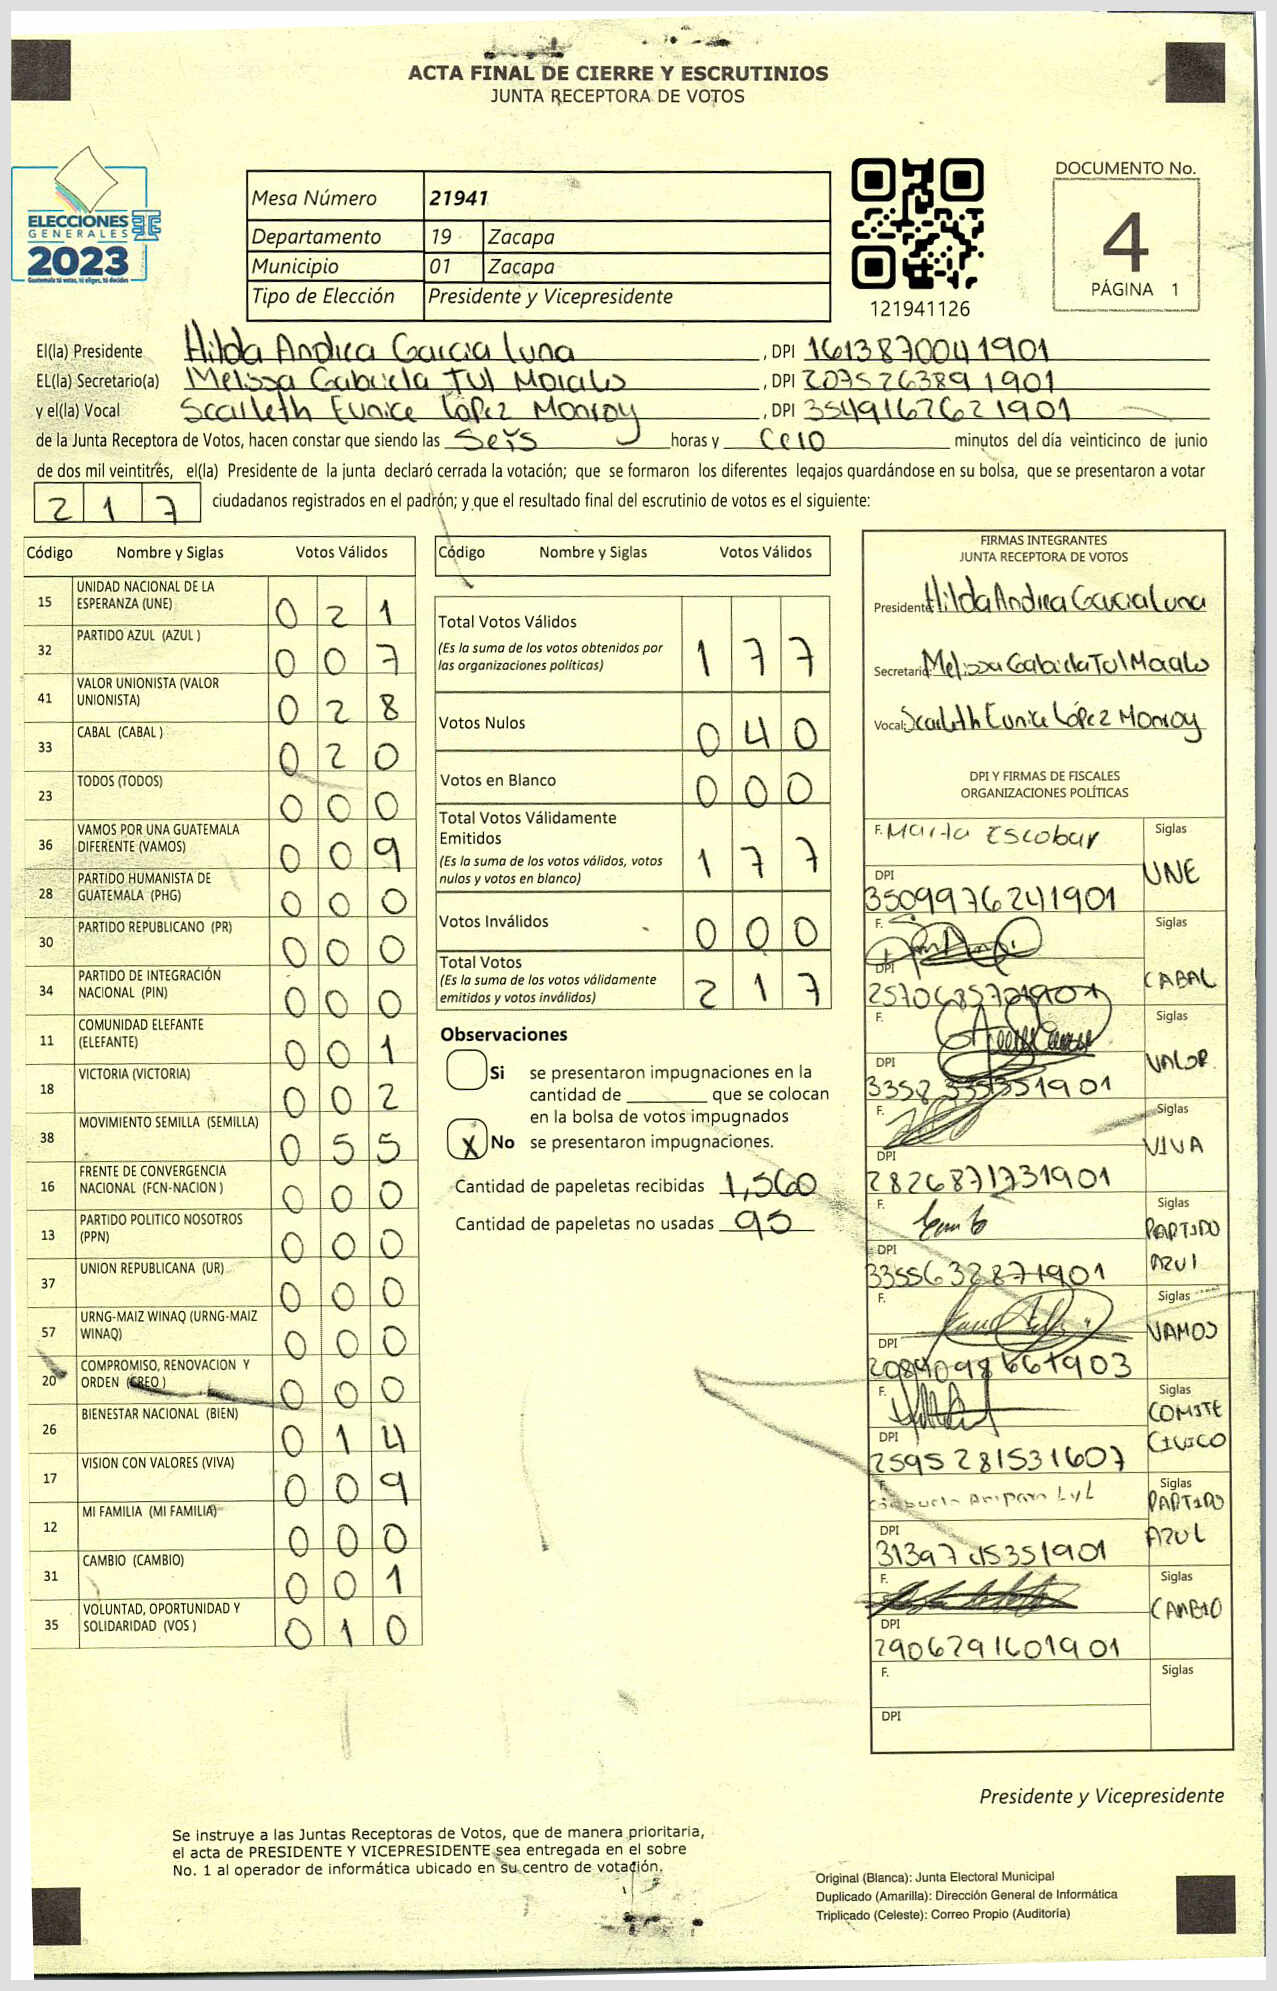 ACTA FINAL DE CIERRE Y ESCRUTINIOS
JUNTA RECEPTORA DE VOTOS
ELECCIONES
GENERALES
2023
Guatemala tú votas, tú eliges, tú decides
Mesa Número 21941
Departamento 19 Zacapa
Municipio 01 Zacapa
Tipo de Elección Presidente y Vicepresidente
121941126
DOCUMENTO No.
4
PÁGINA 1
El(la) Presidente Hilda Andrea Garcia Luna , DPI 1613870041901
EL(la) Secretario(a) Melissa Gabriela Tul Morales , DPI 2075263891901
y el(la) Vocal Scarleth Eunice López Monroy , DPI 3549167621901
de la Junta Receptora de Votos, hacen constar que siendo las Seis horas y Cero minutos del día veinticinco de junio
de dos mil veintitrés, el(la) Presidente de la junta declaró cerrada la votación; que se formaron los diferentes legajos guardándose en su bolsa, que se presentaron a votar
217 ciudadanos registrados en el padrón; y que el resultado final del escrutinio de votos es el siguiente:
Código Nombre y Siglas Votos Válidos
15 UNIDAD NACIONAL DE LA ESPERANZA (UNE) 0 2 1
32 PARTIDO AZUL (AZUL ) 0 0 7
41 VALOR UNIONISTA (VALOR UNIONISTA) 0 2 8
33 CABAL (CABAL ) 0 2 0
23 TODOS (TODOS) 0 0 0
36 VAMOS POR UNA GUATEMALA DIFERENTE (VAMOS) 0 0 9
28 PARTIDO HUMANISTA DE GUATEMALA (PHG) 0 0 0
30 PARTIDO REPUBLICANO (PR) 0 0 0
34 PARTIDO DE INTEGRACIÓN NACIONAL (PIN) 0 0 0
11 COMUNIDAD ELEFANTE (ELEFANTE) 0 0 1
18 VICTORIA (VICTORIA) 0 0 2
38 MOVIMIENTO SEMILLA (SEMILLA) 0 5 5
16 FRENTE DE CONVERGENCIA NACIONAL (FCN-NACION ) 0 0 0
13 PARTIDO POLITICO NOSOTROS (PPN) 0 0 0
37 UNION REPUBLICANA (UR) 0 0 0
57 URNG-MAIZ WINAQ (URNG-MAIZ WINAQ) 0 0 0
20 COMPROMISO, RENOVACION Y ORDEN (CREO ) 0 0 0
26 BIENESTAR NACIONAL (BIEN) 0 1 4
17 VISION CON VALORES (VIVA) 0 0 9
12 MI FAMILIA (MI FAMILIA) 0 0 0
31 CAMBIO (CAMBIO) 0 0 1
35 VOLUNTAD, OPORTUNIDAD Y SOLIDARIDAD (VOS ) 0 1 0
Código Nombre y Siglas Votos Válidos
Total Votos Válidos
(Es la suma de los votos obtenidos por
las organizaciones políticas) 1 7 7
Votos Nulos 0 4 0
Votos en Blanco 0 0 0
Total Votos Válidamente
Emitidos
(Es la suma de los votos válidos, votos
nulos y votos en blanco) 1 7 7
Votos Inválidos 0 0 0
Total Votos
(Es la suma de los votos válidamente
emitidos y votos inválidos) 2 1 7
Observaciones
Si se presentaron impugnaciones en la
cantidad de ________ que se colocan
en la bolsa de votos impugnados
X No se presentaron impugnaciones.
Cantidad de papeletas recibidas 1,560
Cantidad de papeletas no usadas 95
FIRMAS INTEGRANTES
JUNTA RECEPTORA DE VOTOS
Presidente Hilda Andrea Garcia Luna
Secretario Melissa Gabriela Tul Morales
Vocal: Scarleth Eunice López Monroy
DPI Y FIRMAS DE FISCALES
ORGANIZACIONES POLÍTICAS
F. Maria Escobar Siglas
DPI UNE
3509976241901
F. Siglas
DPI CABAL
2570685721901
F. Siglas
DPI VALOR
F. Siglas
DPI VIVA
2826871731901
F. Siglas
DPI PARTIDO AZUL
3355632871901
F. Siglas
DPI VAMOS
2089098661903
F. Siglas
DPI COMITE CIVICO
2595281531607
F. Siglas
DPI PARTIDO AZUL
F. Siglas
DPI CAMBIO
2906291601901
F. Siglas
DPI
Presidente y Vicepresidente
Se instruye a las Juntas Receptoras de Votos, que de manera prioritaria,
el acta de PRESIDENTE Y VICEPRESIDENTE sea entregada en el sobre
No. 1 al operador de informática ubicado en su centro de votación.
Original (Blanca): Junta Electoral Municipal
Duplicado (Amarilla): Dirección General de Informática
Triplicado (Celeste): Correo Propio (Auditoría)